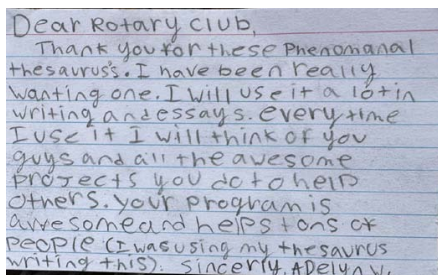 Dear Rotary Club,
Thank you for these Phenomanal
thesaurus's. I have been really
wanting one. I will use it a lot in
writing and essays. every time
I use it I will think of you
guys and all the awesome
projects you do to help
others. your program is
awesome and helps tons of
people (I was using my thesaurus
writing this). Sincerly, Adelynn.